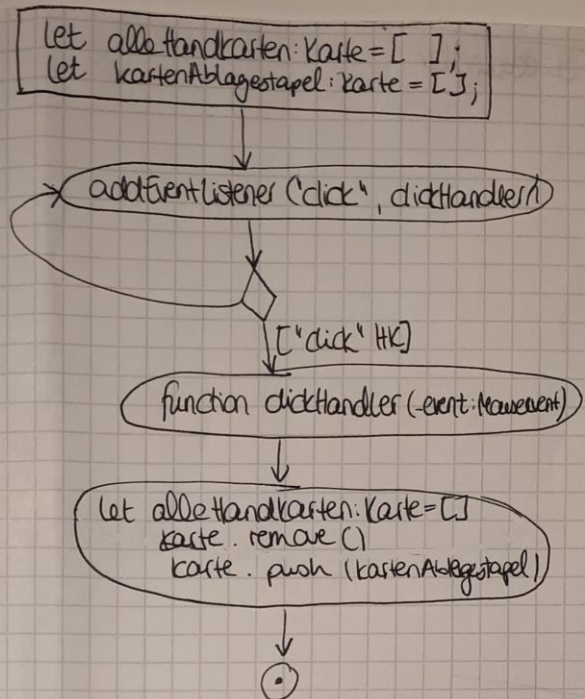 let alleHandkarten: Karte = [ ];
let kartenAblagestapel: Karte = [ ];
addEventListener ("click", clickHandler)
["click" HK]
function clickHandler (-event: Mouseevent)
let alleHandkarten: Karte = [ ]
karte . remove ()
karte . push (kartenAblegestapel)